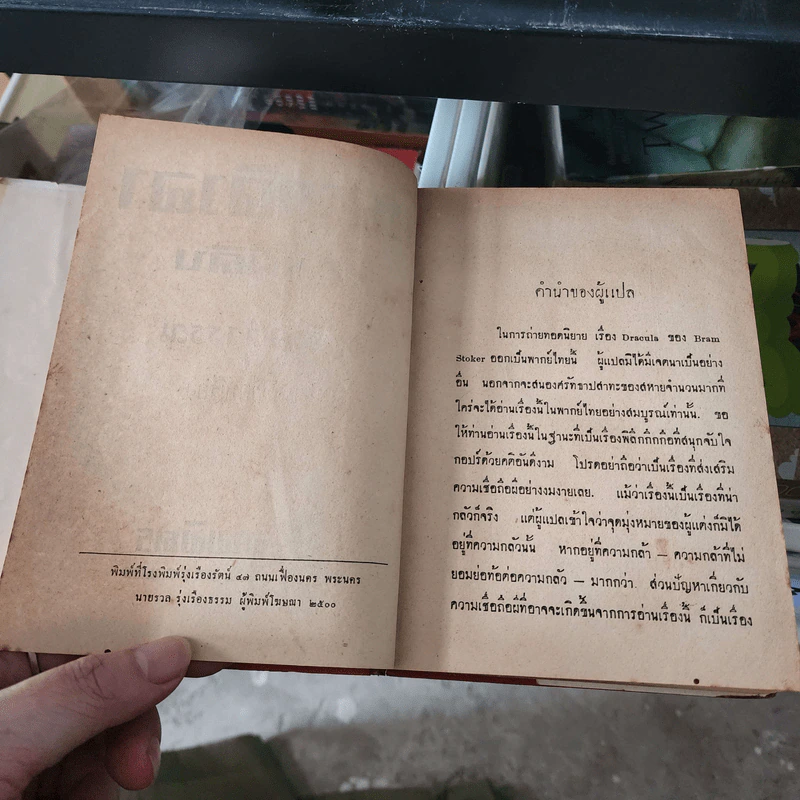 พิมพ์ที่โรงพิมพ์รุ่งเรืองรัตน์ ๔๗ ถนนเฟื่องนคร พระนคร
นายรวล รุ่งเรืองธรรม ผู้พิมพ์โฆษณา ๒๕๐๐
คำนำของผู้แปล
ในการถ่ายทอดนิยาย เรื่อง Dracula ของ Bram
Stoker ออกเป็นพากย์ไทยนี้ ผู้แปลมิได้มีเจตนาเป็นอย่าง
อื่น นอกจากจะสนองศรัทธาปสาทะของสหายจำนวนมากที่
ใคร่จะได้อ่านเรื่องนี้ในพากย์ไทยอย่างสมบูรณ์เท่านั้น. ขอ
ให้ท่านอ่านเรื่องนี้ในฐานะที่เป็นเรื่องพิลึกกึกกือที่สนุกจับใจ
กอปร์ด้วยคติอันดีงาม โปรดอย่าถือว่าเป็นเรื่องที่ส่งเสริม
ความเชื่อถือผีอย่างงมงายเลย. แม้ว่าเรื่องนี้เป็นเรื่องที่น่า
กลัวก็จริง แต่ผู้แปลเข้าใจว่าจุดมุ่งหมายของผู้แต่งก็มิได้
อยู่ที่ความกลัวนั้น หากอยู่ที่ความกล้า — ความกล้าที่ไม่
ยอมย่อท้อต่อความกลัว — มากกว่า. ส่วนปัญหาเกี่ยวกับ
ความเชื่อถือผีที่อาจจะเกิดขึ้นจากการอ่านเรื่องนี้ ก็เป็นเรื่อง